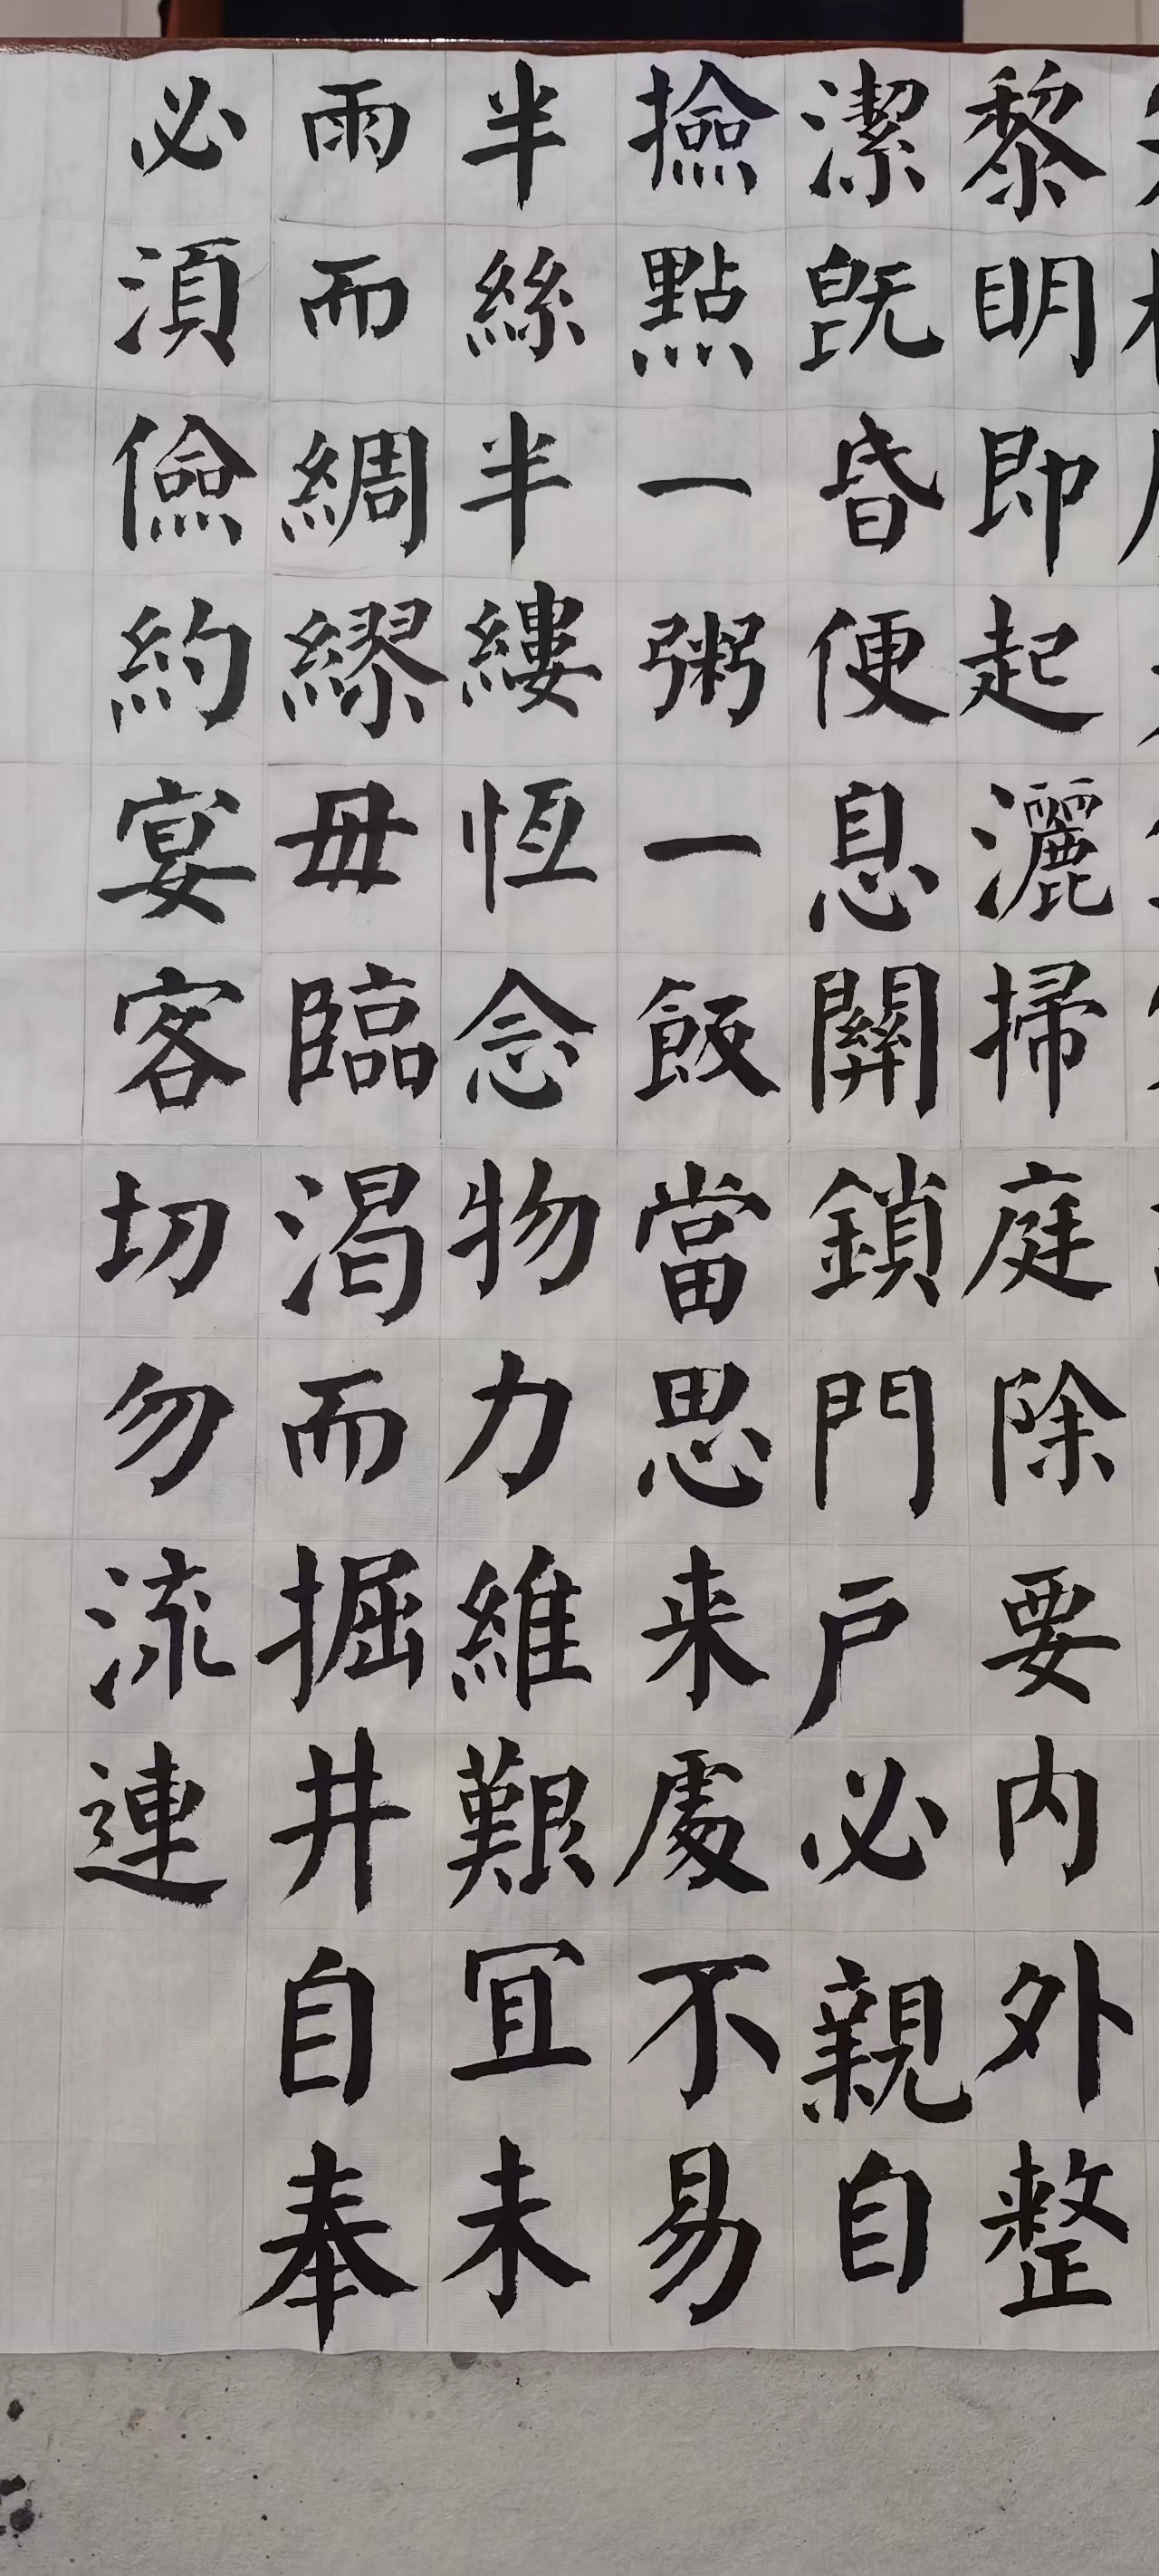 黎明即起灑掃庭除要内外整
潔旣昏便息關鎖門户必親自
撿點一粥一飯當思来處不易
半絲半縷恆念物力維艱冝未
雨而綢繆毋臨渴而掘井自奉
必須儉約宴客切勿流連